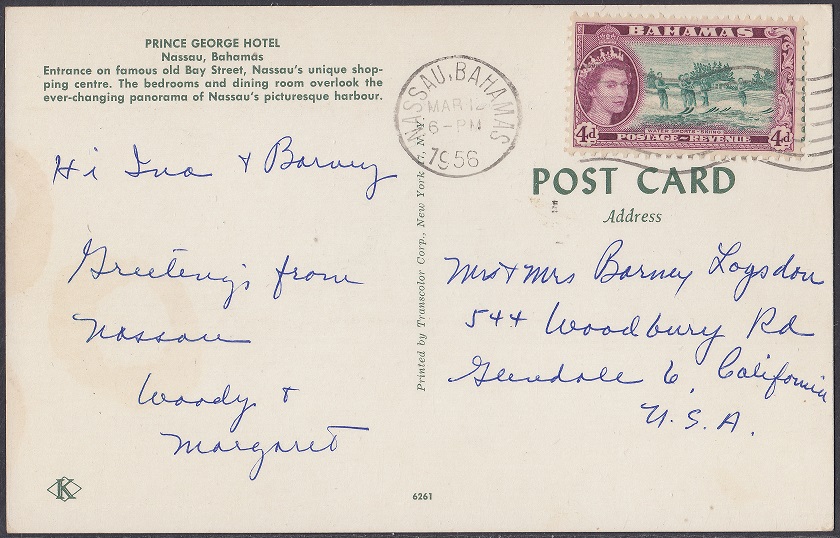 PRINCE GEORGE HOTEL
Nassau, Bahamas
Entrance on famous old Bay Street, Nassau's unique shop-
ping centre. The bedrooms and dining room overlook the
ever-changing panorama of Nassau's picturesque harbour.
Hi Ina + Barney
Greetings from
Nassau
Woody +
Margaret
K
Printed by Transcolor Corp., New York, N.Y.
6261
NASSAU, BAHAMAS
MAR
6-PM
1956
BAHAMAS
4d
WATER SKI-ING
POSTAGE REVENUE
4d
POST CARD
Address
Mr + Mrs Barney Logsdon
544 Woodbury Rd
Glendale 6, California
U.S.A.